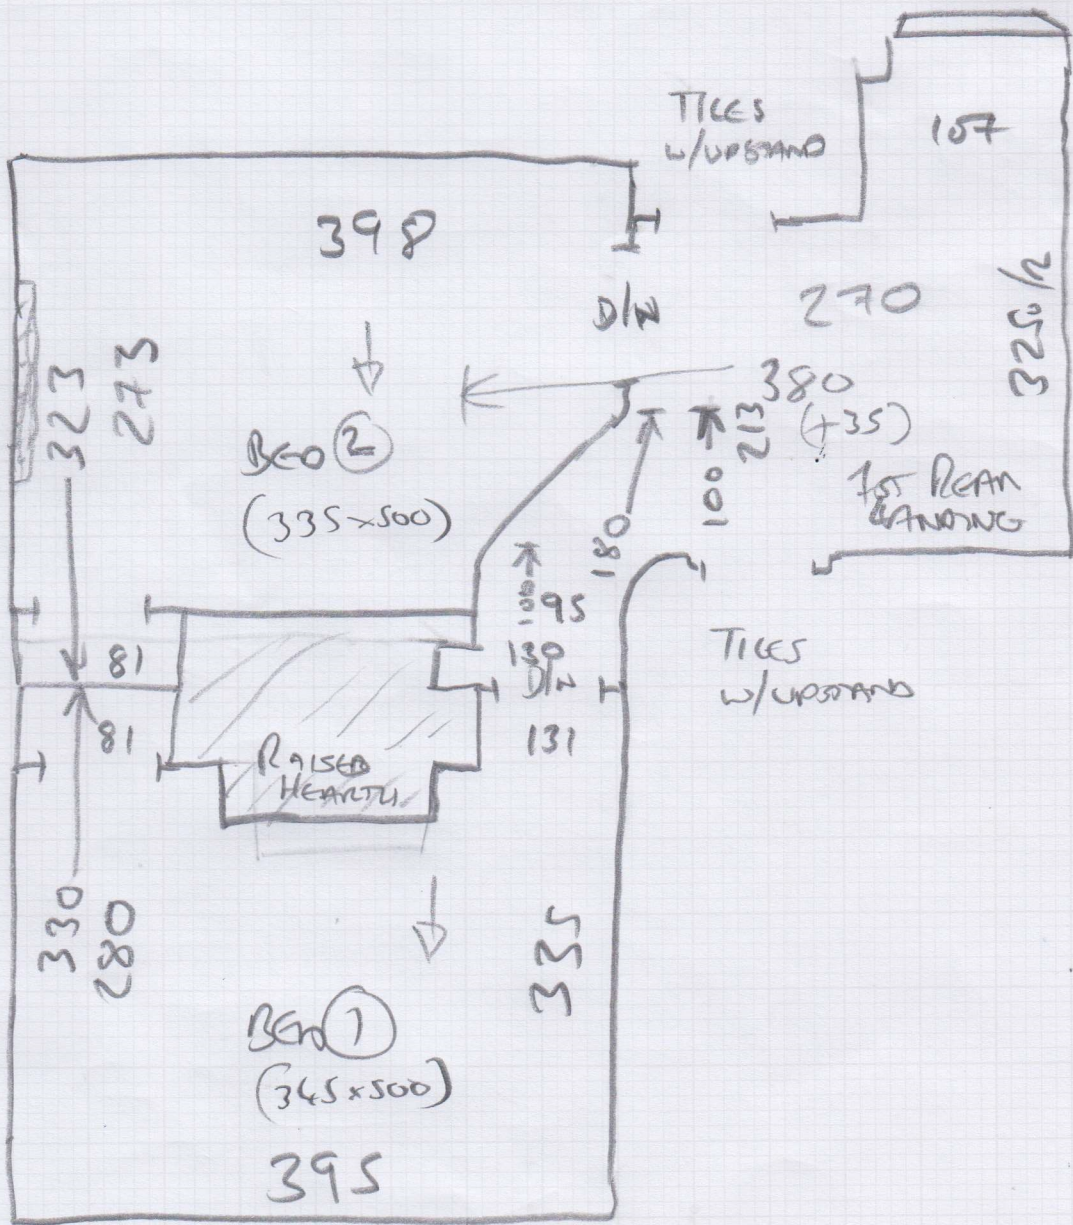 TILES
W/UPSTAND
107
398
D/W
270
3250/R
323
273
380
(+35)
213
100
BED 2
(335×500)
180
1ST REAR
LANDING
95
130
D/W
131
81
81
TILES
W/UPSTAND
RAISED
HEARTH
330
280
335
BED 1
(345×500)
395